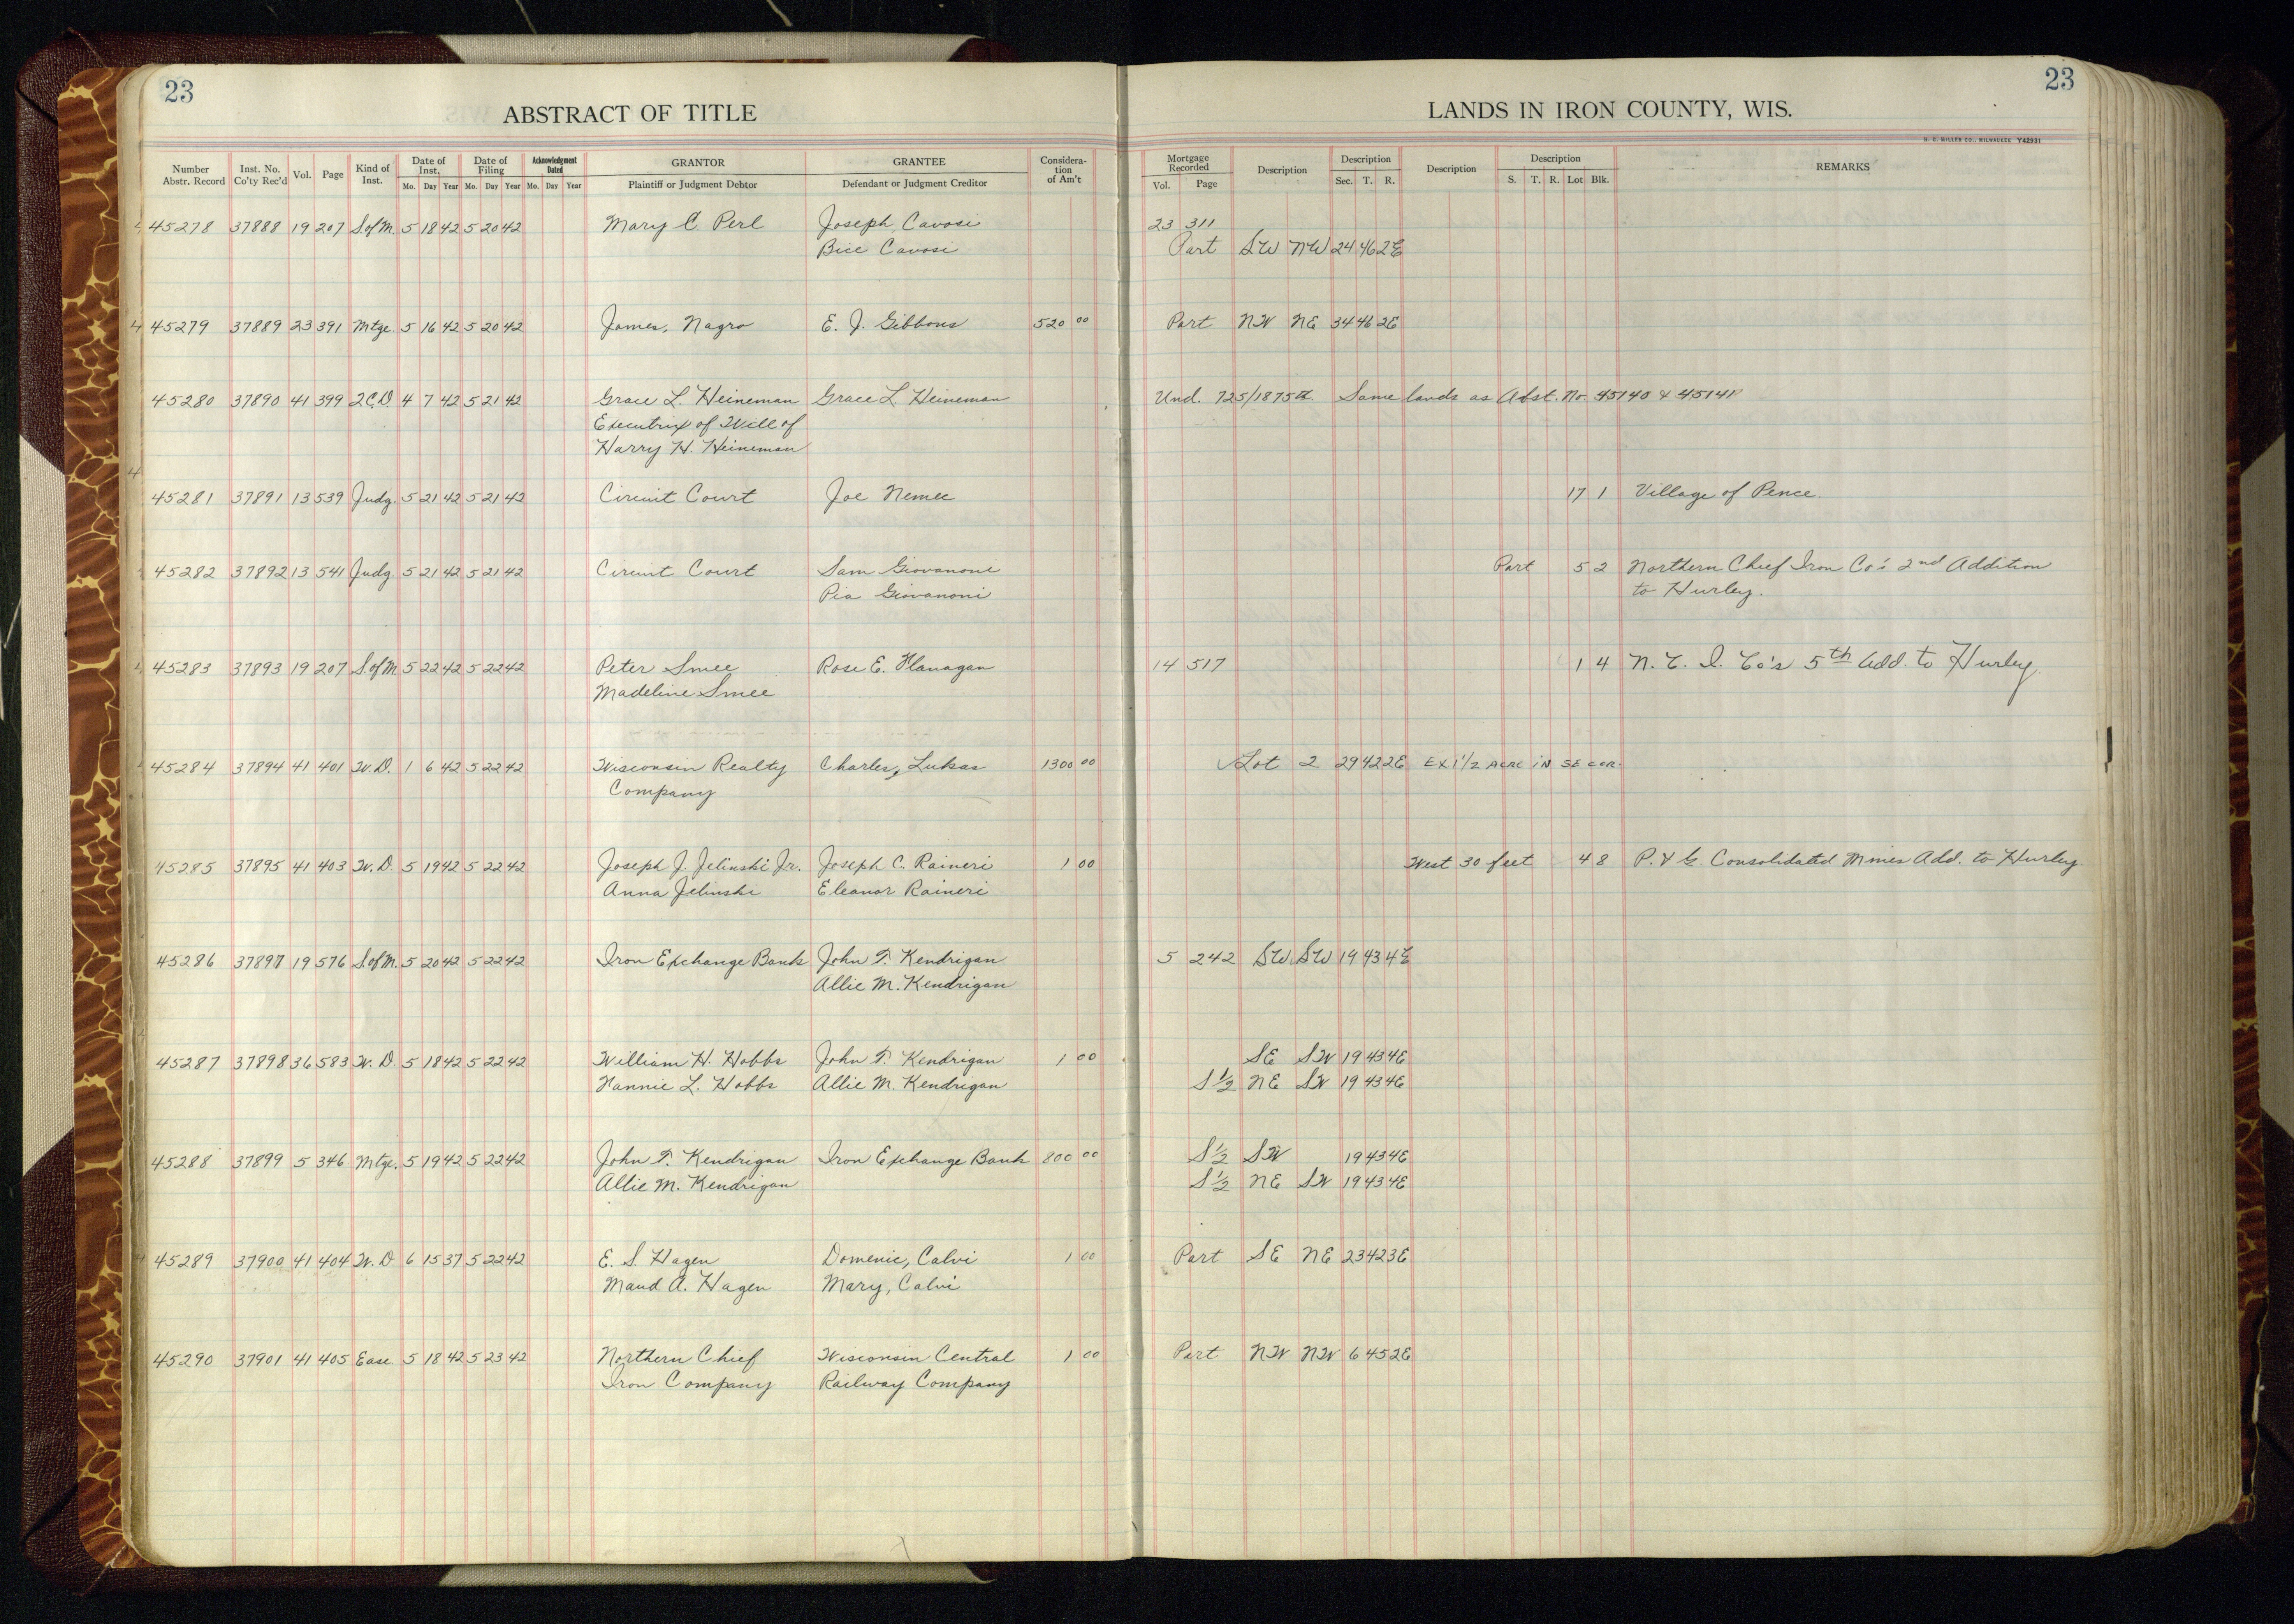 23
23
ABSTRACT OF TITLE
LANDS IN IRON COUNTY, WIS.
MILLER CO., MILWAUKEE Y42931
Number Abstr. Record
Inst. No. Co'ty Rec'd
Vol.
Page
Kind of Inst.
Date of Inst. Mo. Day Year
Date of Filing Mo. Day Year
Acknowledgment Dated Mo. Day Year
GRANTOR Plaintiff or Judgment Debtor
GRANTEE Defendant or Judgment Creditor
Considera- tion of Am't
Mortgage Recorded Vol. Page
Description
Description Sec. T. R.
Description
Description S. T. R. Lot Blk.
REMARKS
45278 37888 19 207 S of M. 5 18 42 5 20 42 Mary C. Perl Joseph Cavosi 23 311
Bice Cavosi Part SW NW 24 46 2E
45279 37889 23 391 Mtge. 5 16 42 5 20 42 James, Nagro E. J. Gibbons 520 00 Part NW NE 34 46 2E
45280 37890 41 399 2C.D. 4 7 42 5 21 42 Grace L. Heineman Grace L. Heineman Und. 725/1875th. Same lands as Abst. No. 45140 & 45141
Executrix of Will of
Harry H. Heineman
45281 37891 13 539 Judg. 5 21 42 5 21 42 Circuit Court Joe Nemec 17 1 Village of Pence.
45282 37892 13 541 Judg 5 21 42 5 21 42 Circuit Court Sam Giovanoni Part 5 2 Northern Chief Iron Co's 2nd Addition
Pia Giovanoni to Hurley.
45283 37893 19 207 S of M 5 22 42 5 22 42 Peter Smee Rose E. Flanagan 14 517 1 4 N. C. I. Co's 5th Add. to Hurley.
Madeline Smee
45284 37894 41 401 W.D. 1 6 42 5 22 42 Wisconsin Realty Charles, Lukas 1300 00 Lot 2 29 42 2E EX 1/2 ACRE IN SE COR.
Company
45285 37895 41 403 W.D. 5 19 42 5 22 42 Joseph J. Jelinski Jr. Joseph C. Raineri 1 00 West 30 feet 4 8 P. & G. Consolidated Mines Add. to Hurley
Anna Jelinski Eleanor Raineri
45286 37897 19 576 S. of M. 5 20 42 5 22 42 Iron Exchange Bank John F. Kendrigan 5 242 SW SW 19 43 4E
Allie M. Kendrigan
45287 37898 36 583 W. D. 5 18 42 5 22 42 William H. Hobbs John F. Kendrigan 1 00 SE SW 19 43 4E
Nannie L. Hobbs Allie M. Kendrigan S 1/2 NE SW 19 43 4E
45288 37899 5 346 Mtge. 5 19 42 5 22 42 John F. Kendrigan Iron Exchange Bank 800 00 S 1/2 SW 19 43 4E
Allie M. Kendrigan S 1/2 NE SW 19 43 4E
45289 37900 41 404 W.D 6 15 37 5 22 42 E. S. Hagen Domenic, Calvi 1 00 Part SE NE 23 42 3E
Maud A. Hagen Mary, Calvi
45290 37901 41 405 Ease. 5 18 42 5 23 42 Northern Chief Wisconsin Central 1 00 Part NW NW 6 45 2E
Iron Company Railway Company